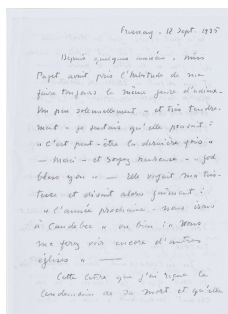 Fresnay. 18 Sept. 1935
Depuis quelques années, Miss
Paget avait pris l'habitude de me
faire toujours le même genre d'adieu.
Un peu solennellement - et très tendre-
ment - je sentais qu'elle pensait :
« C'est peut-être la dernière fois. »
— Merci - et soyez heureuse - god
bless you » — Elle voyait ma tris-
tesse et disait alors gaiment :
« l'année prochaine nous irons
à Caudebec » ou bien : « Vous
me ferez voir encore d'autres
églises » —
Cette lettre que j'ai reçue le
lendemain de sa mort et qu'elle